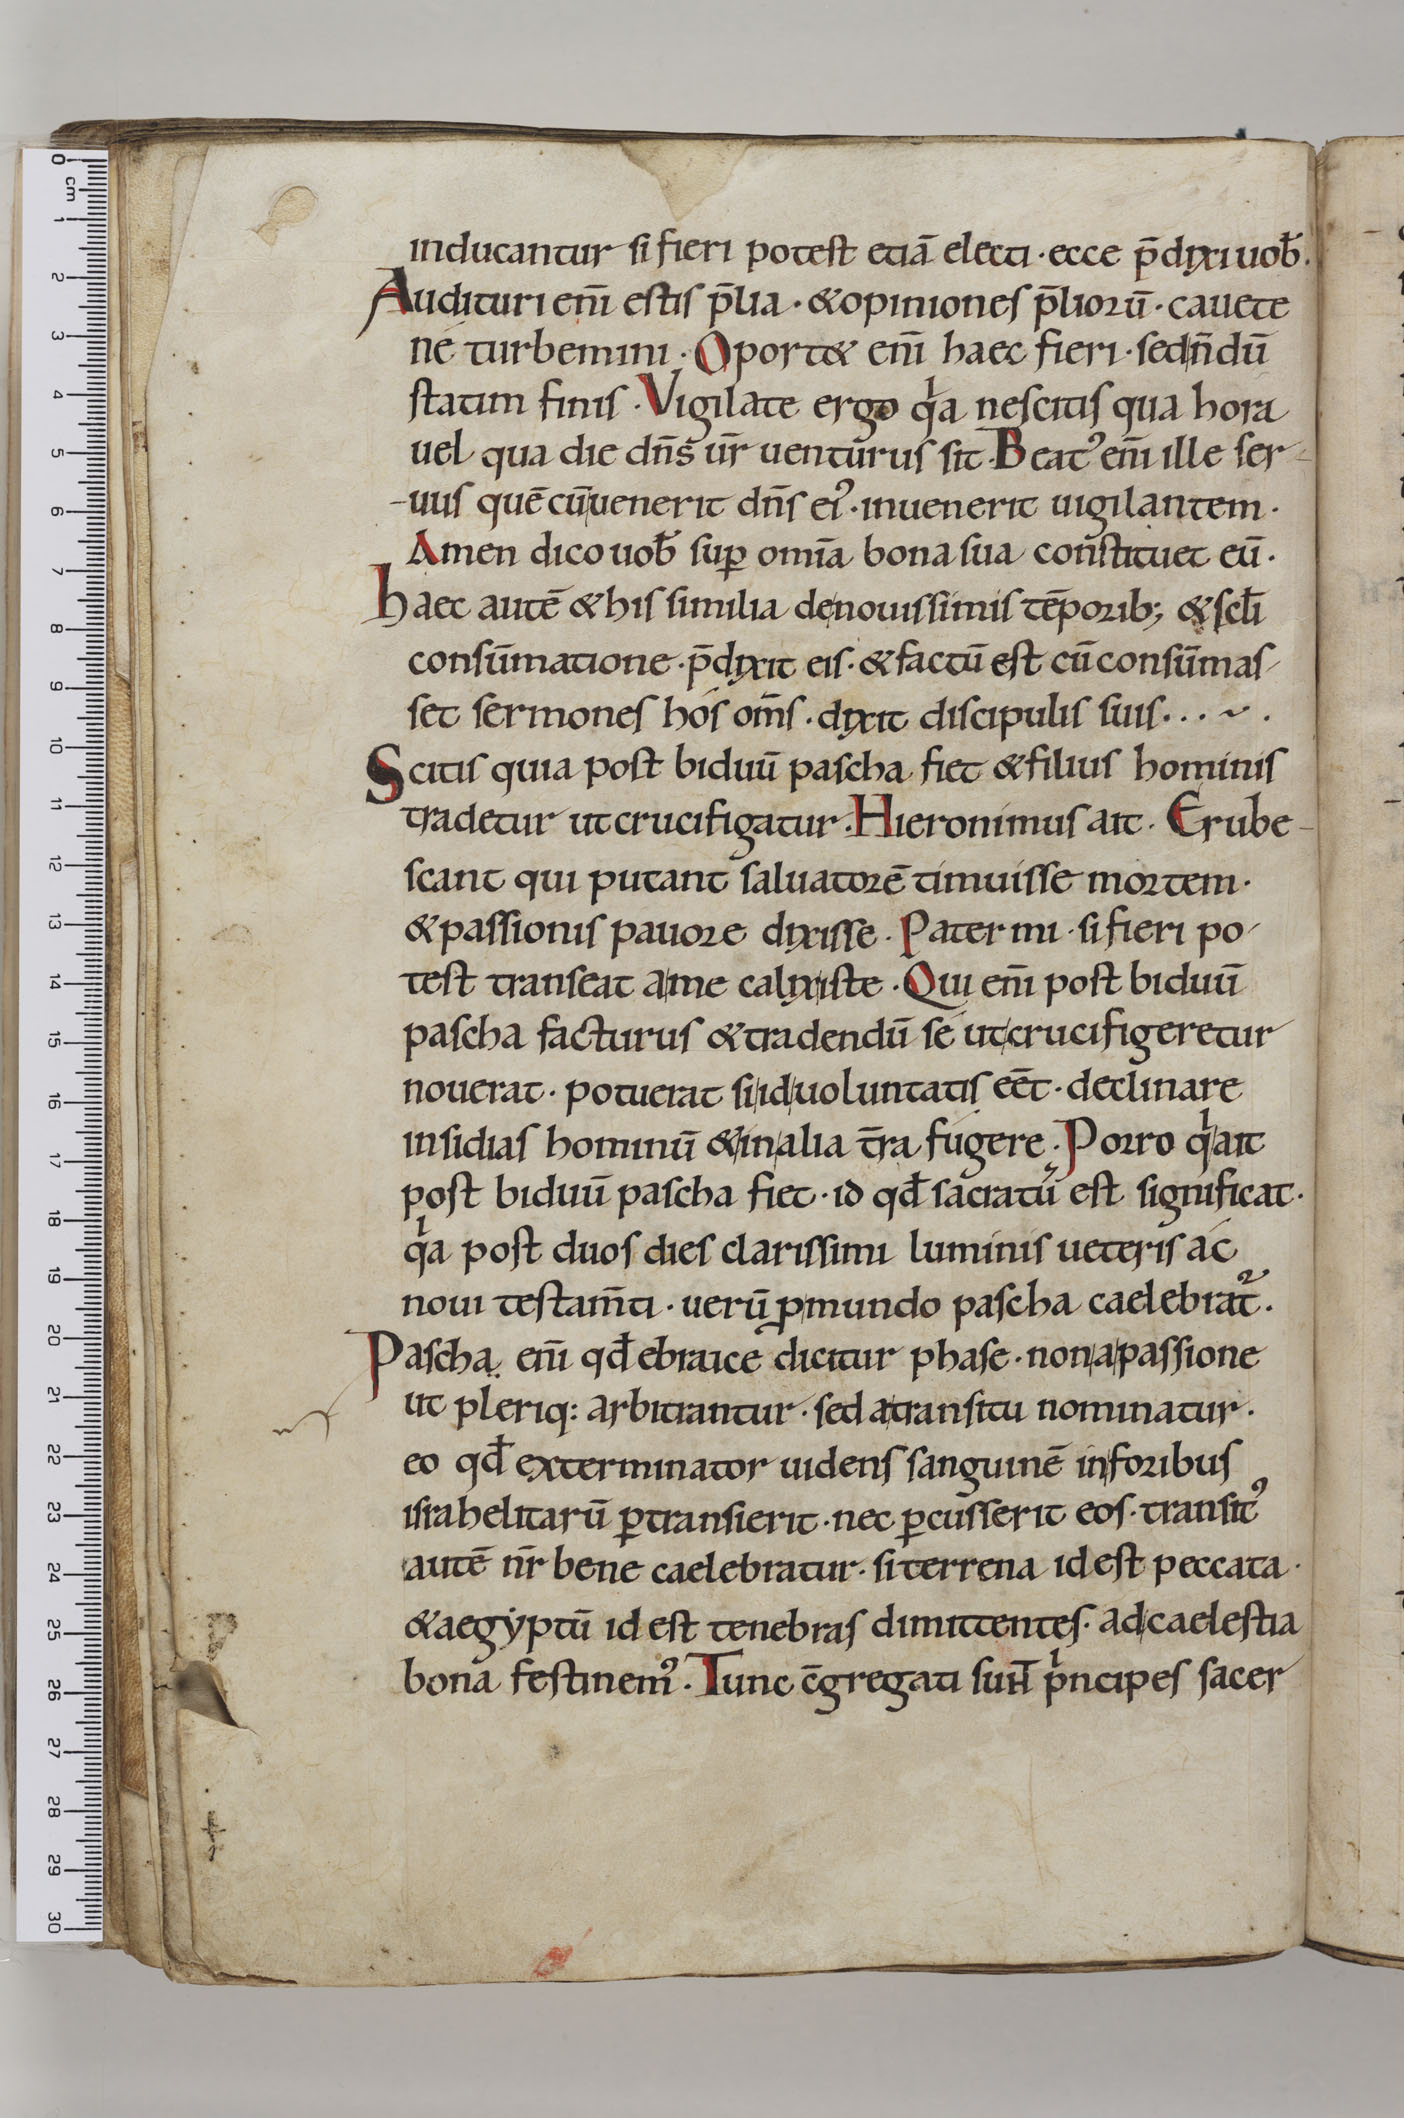 inducantur si fieri potest etiā electi · ecce p̄dixi uob̄.
Audituri eni̅ estis p̄lia · & opiniones p̄liorū · cauete
ne turbemini · Oport& eni̅ haec fieri · sed n̄dū
statim finis · Vigilate ergo qͥa nescitis qua hora
uel qua die dn̄s ur̄ uenturus sit · Beatꝰ eni̅ ille ser-
-uus quē cū uenerit dn̄s eiꝰ · inuenerit uigilantem ·
Amen dico uob̄ suꝑ omīa bona sua constituet eū ·
haec autē & his similia de nouissimis tēporib; & scl̄i
consūmatione · p̄dixit eis · & factū est cū consūmas-
set sermones hos om̄s · dixit discipulis suis . . . ~ .
Scitis quia post biduū pascha fiet & filius hominis
tradetur ut crucifigatur · Hieronimus ait · Erube-
scant qui putant saluatorē timuisse mortem ·
& passionis pauore dixisse · Pater mi · si fieri po-
test transeat a me calix iste · Qui eni̅ post biduū
pascha facturus & tradendū se ut crucifigeretur
nouerat · potuerat si id uoluntatis eēt · declinare
insidias hominū & in alia t̄ra fugere · Porro qͥ ait
post biduū pascha fiet · id qd̄ sacratū est significat ·
qͥa post duos dies clarissimi luminis ueteris ac
noui testam̄ti · uerū ꝑ mundo pascha caelebrat᷑ ·
Pascha eni̅ qd̄ ebraice dicitur phase · non a passione
ut pleriq: arbitrantur · sed a transitu nominatur ·
eo qd̄ exterminator uidens sanguinē in foribus
israhelitarū ꝑtransierit · nec ꝑcusserit eos · transitꝰ
autē nr̄ bene caelebratur · si terrena id est peccata ·
& aegẏptū id est tenebras dimittentes · ad caelestia
bona festinemꝰ · Tunc c̄gregati sunt pͥncipes sacer